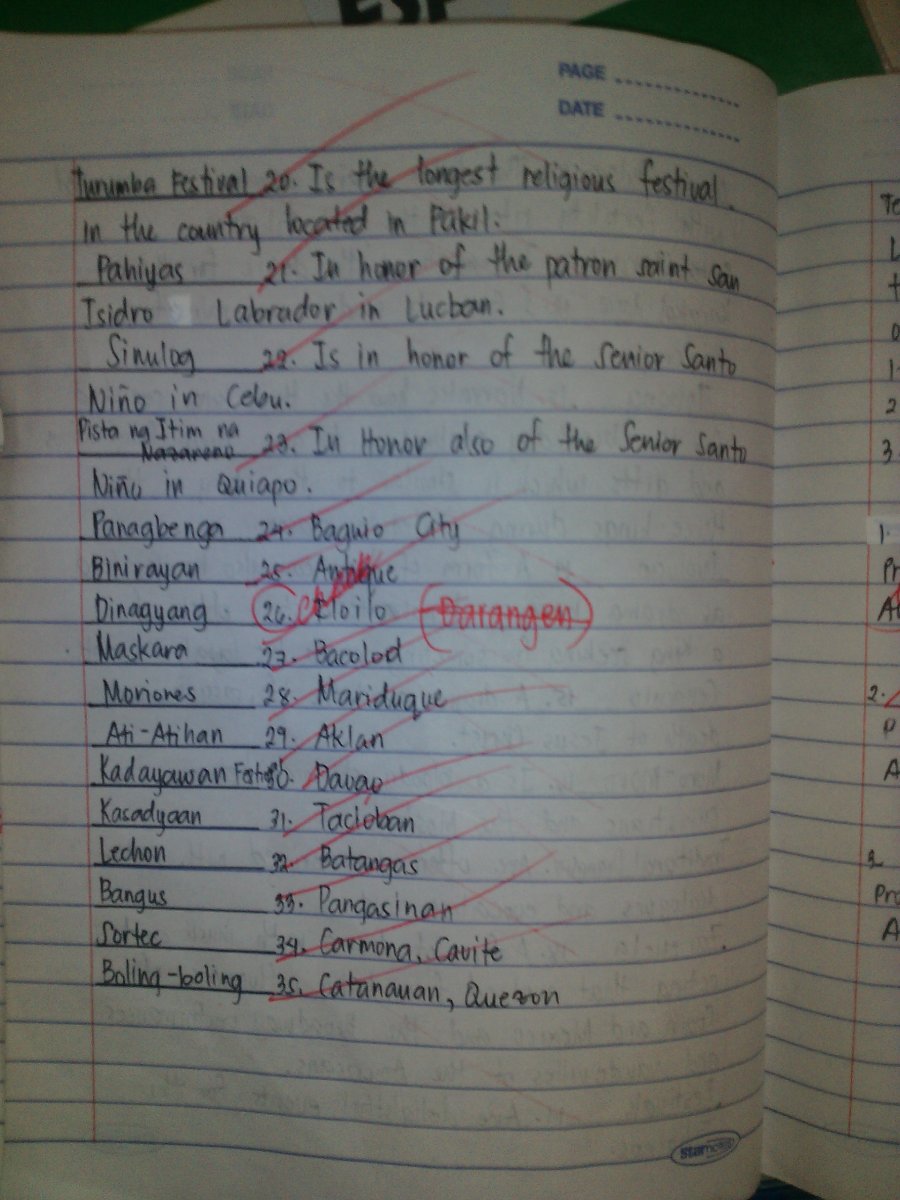 ESP
PAGE
DATE
Turumba Festival 20. Is the longest religious festival
in the country located in Pakil.
Pahiyas 21. In honor of the patron saint San
Isidro Labrador in Lucban.
Sinulog 22. Is in honor of the Senior Santo
Niño in Cebu.
Pista ng Itim na
Nazareno 23. In Honor also of the Senior Santo
Niño in Quiapo.
Panagbenga 24. Baguio City
Binirayan 25. Antique
Dinagyang 26. Iloilo (Darangen)
Maskara 27. Bacolod
Moriones 28. Mariduque
Ati-Atihan 29. Aklan
Kadayawan Festival 30. Davao
Kasadyaan 31. Tacloban
Lechon 32. Batangas
Bangus 33. Pangasinan
Sortec 34. Carmona, Cavite
Boling-boling 35. Catanauan, Quezon